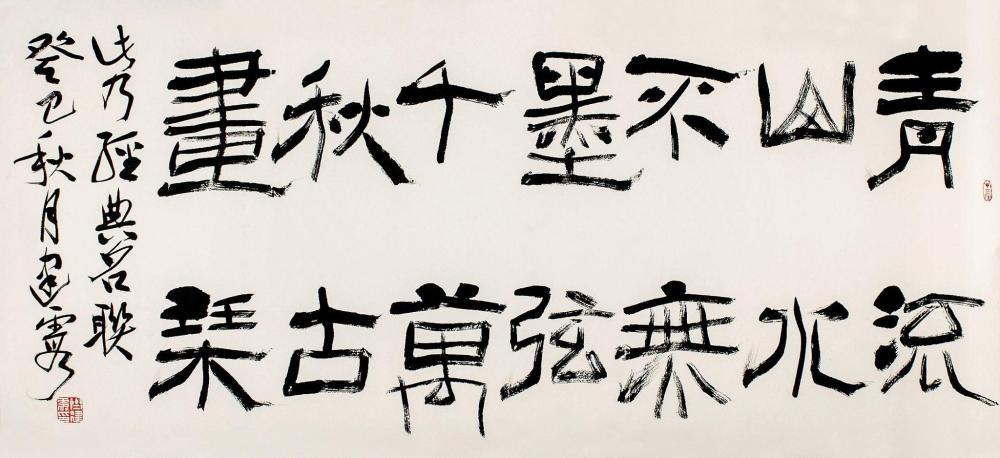 青山不墨千秋畫
流水無弦萬古琴
此乃經典名聯
癸巳秋月建霞